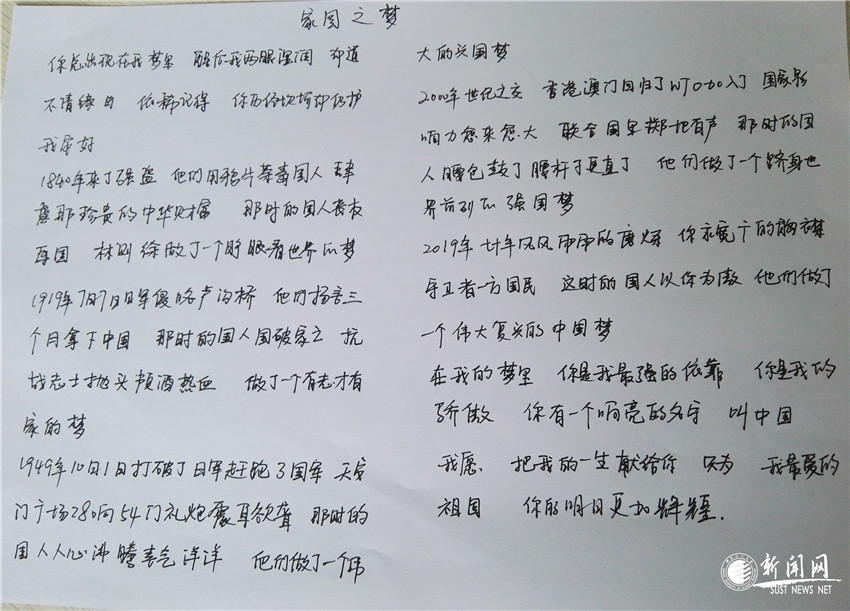 家国之梦
你总出现在我梦里 醒后我两眼湿润 却道
不清缘由 依稀记得 你历经坎坷却仍护
我安好
1840年来了强盗 他们用鸦片荼毒国人
那珍贵的中华财富 那时的国人丧权
辱国 林则徐做了一个睁眼看世界的梦
1919年7月7日日军侵略卢沟桥 他们扬言三
个月拿下中国 那时的国人国破家亡 抗
战志士抛头颅洒热血 做了一个有志才有
家的梦
1949年10月1日打破了日军赶跑了国军 天安
门广场28响54门礼炮震耳欲聋 那时的
国人人心沸腾喜气洋洋 他们做了一个伟
大的兴国梦
2000年世纪之交 香港澳门回归了WTO加入了 国家影
响力愈来愈大 联合国里掷地有声 那时的国
人腰包鼓了腰杆子更直了 他们做了一个跻身世
界前列的强国梦
2019年 廿年风风雨雨的磨炼 你宽广的胸襟
守卫者一方国民 这时的国人以你为傲 他们做了
一个伟大复兴的中国梦
在我的梦里 你是我最强的依靠 你是我的
骄傲 你有一个响亮的名字 叫中国
我愿 把我的一生献给你 只为 我最爱的
祖国 你的明日更加辉煌.
新闻网
SUST NEWS NET